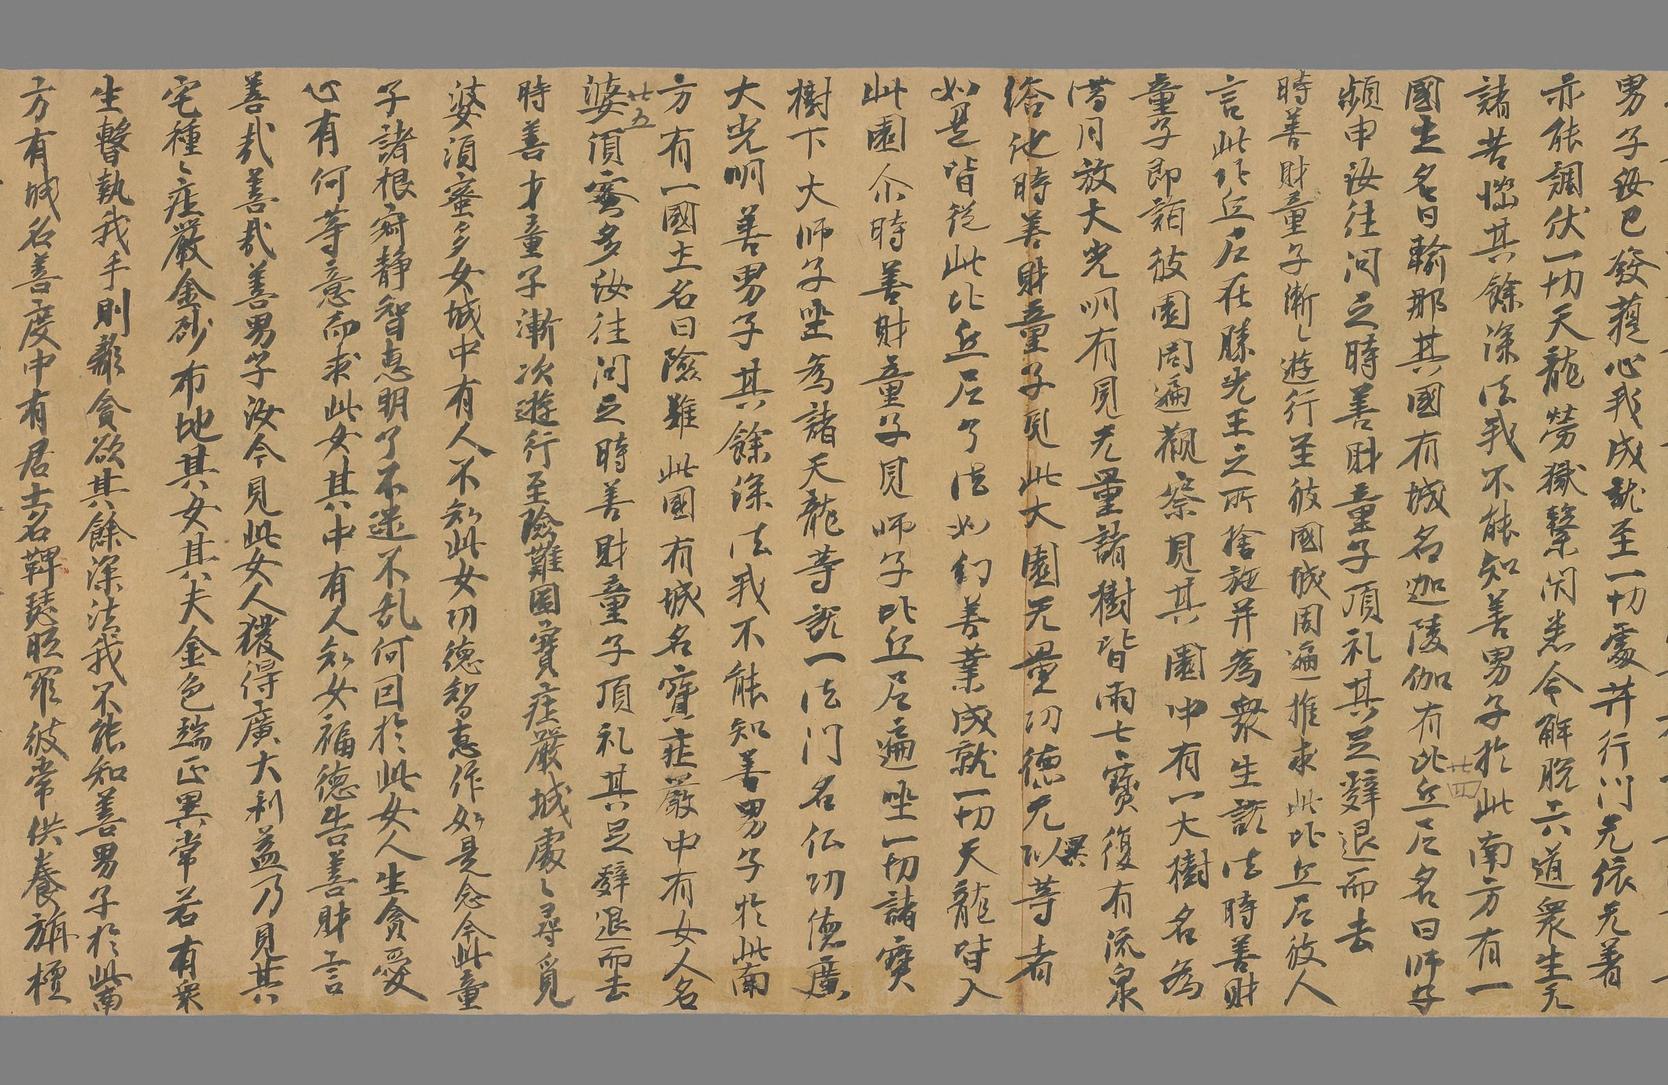 男子汝已發菩提心我成就至一切處菩薩行門无依无著
亦能調伏一切天龍勞獄繫閉悉令解脫六道衆生无
諸苦惱其餘深法我不能知善男子於此南方有一
國土名曰輸那其國有城名迦陵伽有比丘尼名曰師子
頻申汝往問之時善財童子頂礼其足辞退而去
廿四
時善財童子漸々遊行至彼國城周遍推求此比丘尼彼人
言此比丘尼在勝光王之所捨施并為衆生說法時善財
童子即詣彼園周遍觀察見其園中有一大樹名為
滿月放大光明有見无量諸樹皆雨七寶復有流泉
浴池時善財童子見此大園无量功德无以等者
如是皆從此比丘尼了法如幻善業成就一切天龍皆入
此園尒時善財童子見師子比丘尼遍坐一切諸寶
樹下大師子座為諸天龍等說一法門名仏功德廣
大光明善男子其餘深法我不能知善男子於此南
方有一國土名曰險難此國有城名寶莊嚴中有女人名
廿五
婆須蜜多汝往問之時善財童子頂礼其足辞退而去
時善才童子漸次遊行至險難國寶莊嚴城處々尋覓
婆須蜜多女城中有人不知此女功德智惠作如是念今此童
子諸根寂靜智惠明了不迷不乱何因於此女人生貪愛
心有何等意而求此女其中有人知女福德告善財言
善哉善哉善男子汝今見此女人獲得廣大利益乃見其
宅種々莊嚴金砂布地其女其夫金色端正異常若有衆
生暫執我手則離貪欲其餘深法我不能知善男子於此南
方有城名善度中有居士名鞞瑟胝羅彼常供養旃檀